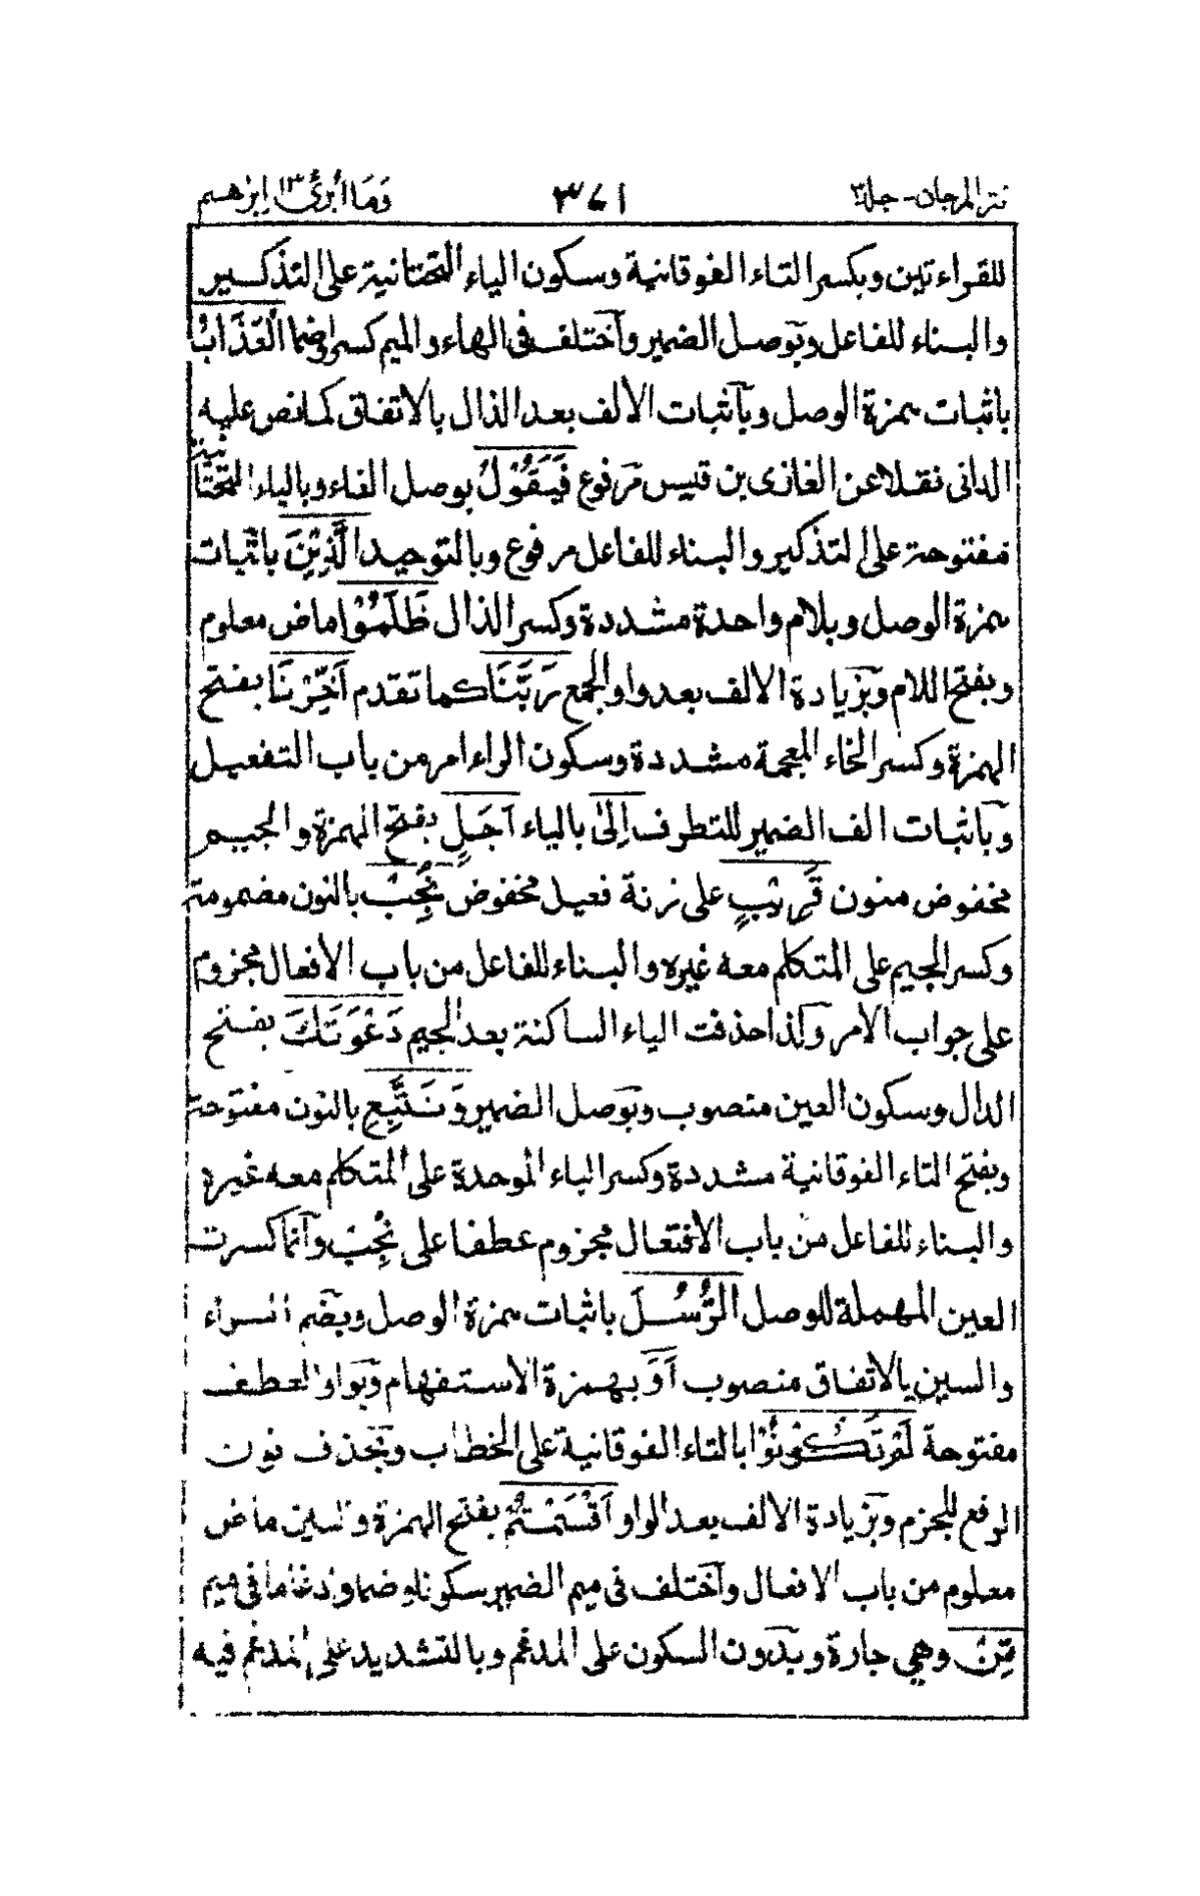 نثر المرجان - جلد٣
٣٧١
وَمَا أُبَرِّئُ ١٣ إبرٰهيم
للقراءتين وبكسر التاء الفوقانية وسكون الياء التحتانية على التذكير
والبناء للفاعل وبوصل الضمير وآختلف فى الهاء والميم كسرا وضما الْعَذَابُ
باثبات همزة الوصل وبآثبات الالف بعد الذال بالاتفاق كما نص عليه
الدانى نقلا عن الغازى بن قيس مرفوع فَيَقُوْلُ بوصل الفاء وبالياء التحتانية
مفتوحة على التذكير والبناء للفاعل مرفوع وبالتوحيد الَّذِيْنَ باثبات
همزة الوصل وبلام واحدة مشددة وكسر الذال ظَلَمُوْا ماض معلوم
وبفتح اللام وبزيادة الالف بعد واو الجمع رَبَّنَا كما تقدم اَخِّرْنَا بفتح
الهمزة وكسر الخاء المعجمة مشددة وسكون الراء امر من باب التفعيل
وبآثبات الف الضمير للتطرف اِلٰى بالياء اَجَلٍ بفتح الهمزة والجيم
مخفوض منون قَرِيْبٍ على زنة فعيل مخفوض نُّجِبْ بالنون مضمومة
وكسر الجيم على المتكلم معه غيره والبناء للفاعل من باب الافعال مجزوم
على جواب الامر وكذا حذفت الياء الساكنة بعد الجيم دَعْوَتَكَ بفتح
الدال وسكون العين منصوب وبوصل الضمير وَنَتَّبِعِ بالنون مفتوحة
وبفتح التاء الفوقانية مشددة وكسر الباء الموحدة على المتكلم معه غيره
والبناء للفاعل من باب الافتعال مجزوم عطفا على نُجِبْ وآنما كسرت
العين المهملة للوصل الرُّسُلَ باثبات همزة الوصل وبضم الراء
والسين بالاتفاق منصوب اَوَ بهمزة الاستفهام وبواو العطف
مفتوحة لَمْ تَكُوْنُوْا بالتاء الفوقانية على الخطاب وبحذف نون
الرفع للجزم وبزيادة الالف بعد الواو اَقْسَمْتُمْ بفتح الهمزة والسين ماض
معلوم من باب الافعال وآختلف فى ميم الضمير سكونا وضما وادغاما فى ميم
مِّنْ وهي جارة وبدون السكون على المدغم وبالتشديد على المدغم فيه